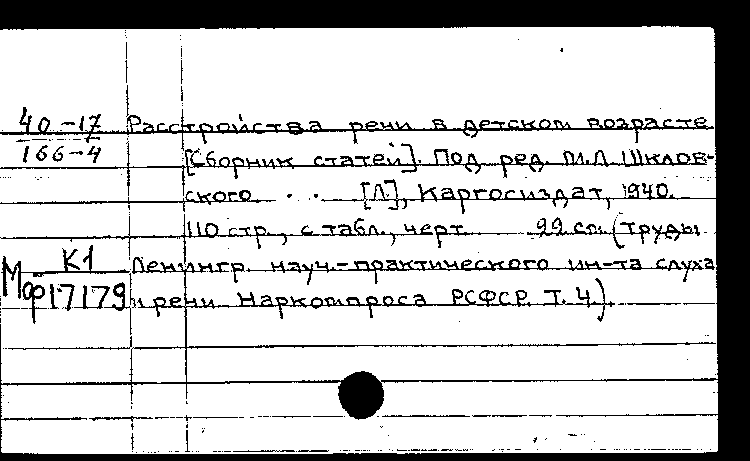 40-17 Расстройства речи в детском возрасте
166-4 [Сборник статей]. Под ред. М.Л. Шклов-
ского. . . [Л.], Каргосиздат, 1940.
110 стр., с табл., черт. 22 см. (Труды
К1 Ленингр. науч.-практического ин-та слуха
Мф 17179 и речи Наркомпроса РСФСР. Т. 4.).